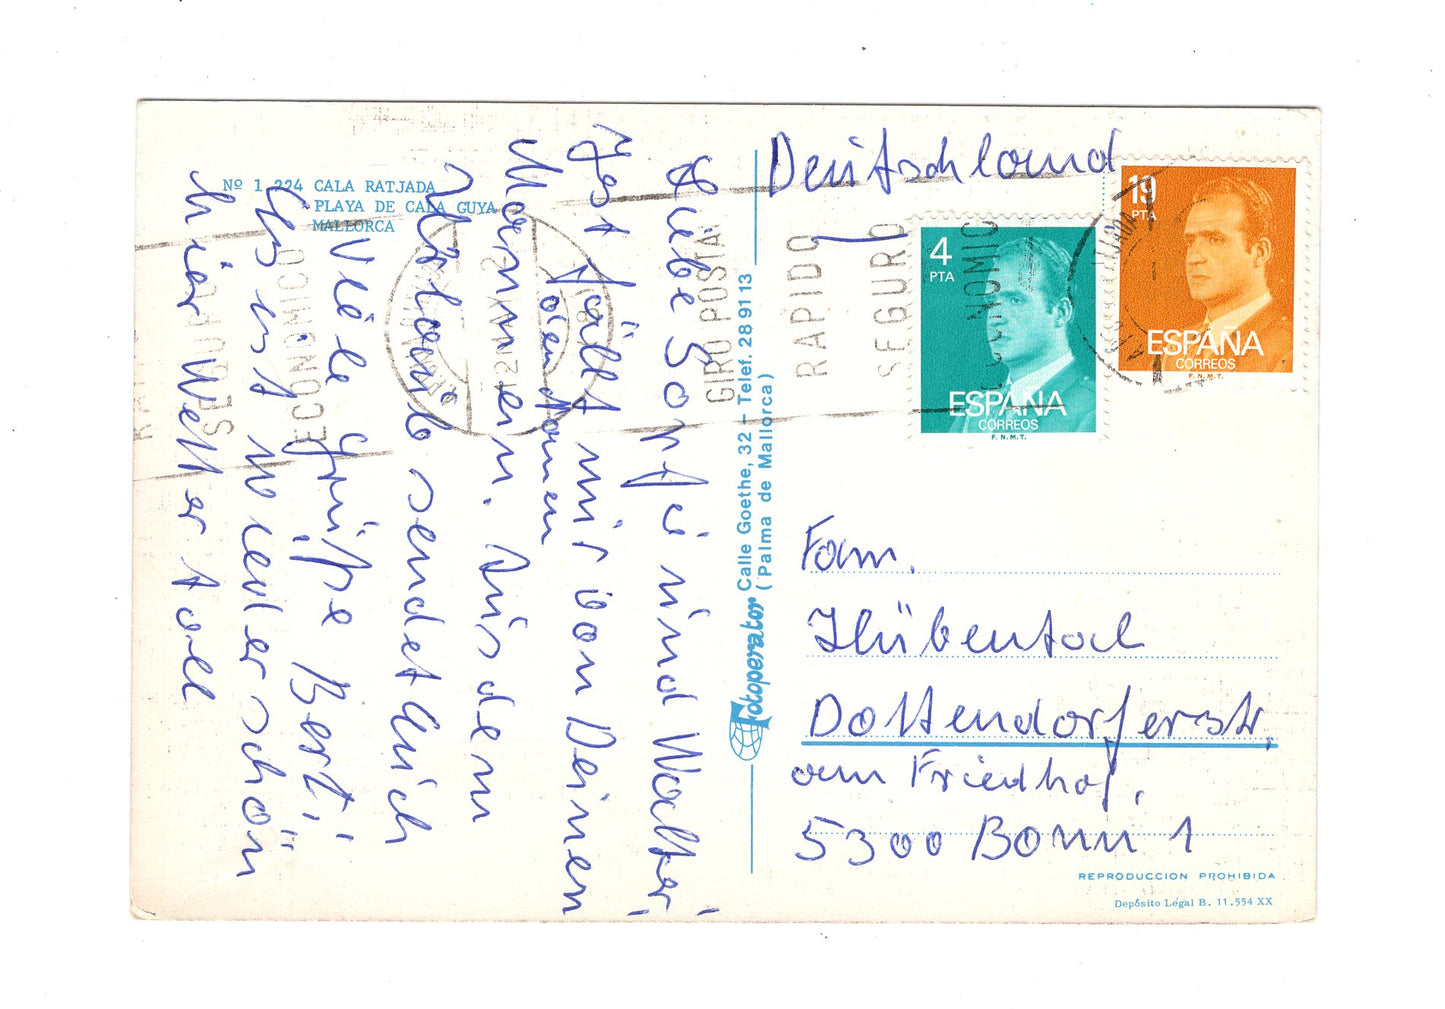 Nº 1.224 CALA RATJADA
PLAYA DE CALA GUYA
MALLORCA
Liebe Sonja und Walter!
Jest fällt mir von Deinen
Volendamen
Männern. Aus dem
Urlaub sendet Euch
Viele Grüße Bert!
Es ist wieder schön
hier Wetter toll
Fotoperator Calle Goethe, 32 - Telef. 28 91 13
(Palma de Mallorca)
GIRO POSTAL
RAPIDO
SEGURO
ECONOMICO
ECONOMICO
12 MAY
Deutschland
4
PTA
ESPAÑA
CORREOS
F.N.M.T.
19
PTA
ESPAÑA
CORREOS
F.N.M.T.
Fam.
Hübental
Dottendorferstr.
am Friedhof.
5300 Bonn 1
REPRODUCCION PROHIBIDA
Depósito Legal B. 11.554 XX